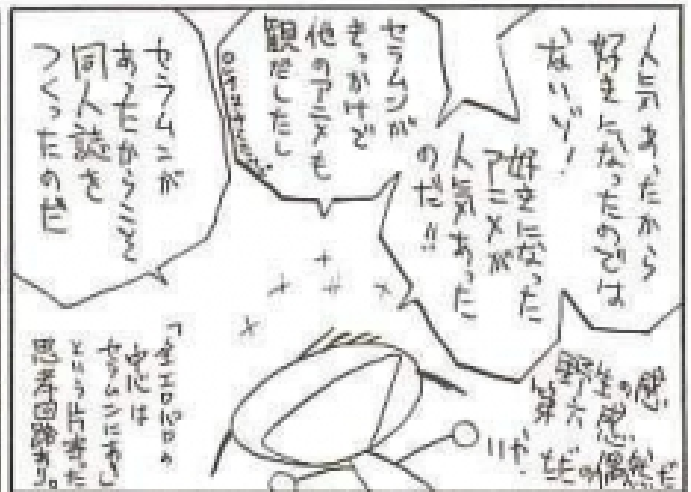 人気あったから
好きになったのでは
ないゾ!
好きになった
アニメが
人気あった
のだ!!
セラムンが
きっかけで
他のアニメも
観だしたし
セラムンが
あったからこそ
同人誌を
つくったのだ
野生の感
第六感
いや、
ただの偶然だ
セラムンにあり
という片寄った
思考回路あり。